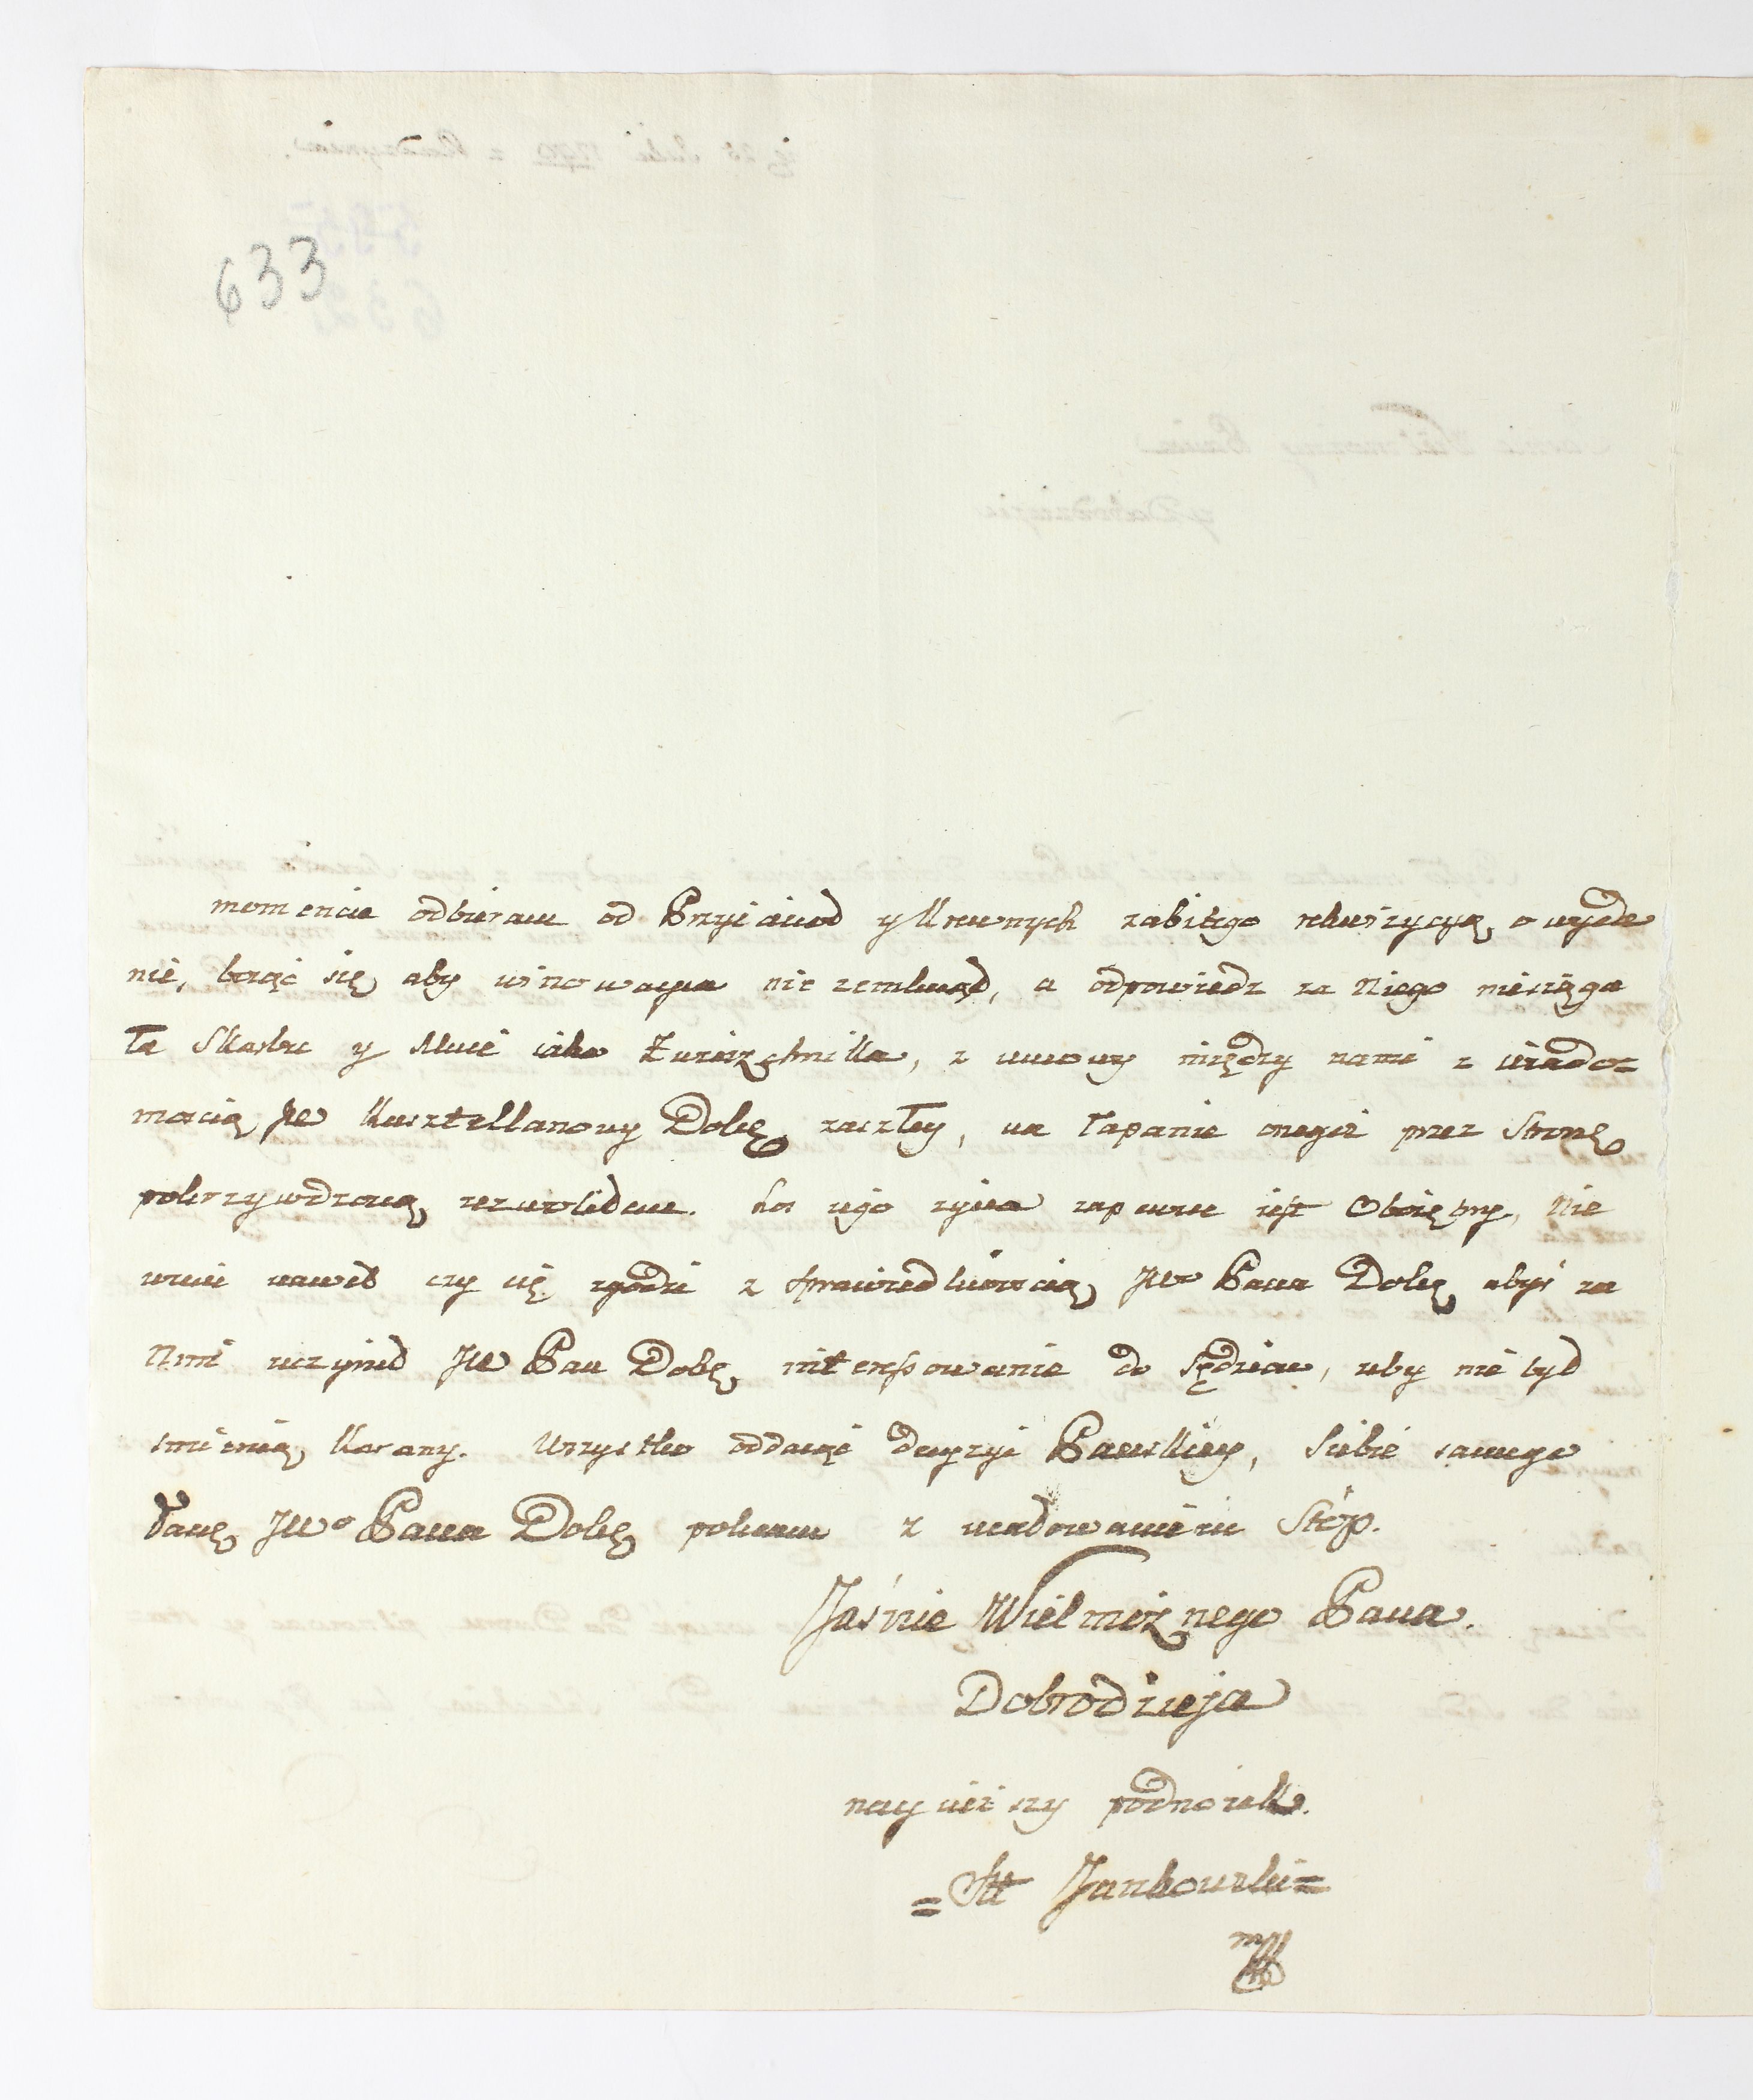 633
momencie odbieram od Przyiacioł y Krewnych zabitego rekwizycyą o wyda
nie, boiąc się aby winowayca nie zemknął, a odpowiedź za Niego niesięga
ła Skarbu y Mnie iako Zwierzchnika, z umowy między nami z wiado=
mością JW Kasztellanowy Dobę zaszłey, na łapanie onegoż przez Stronę
pokrzywdzoną zezwoliłem. Los iego życia zapewne iest Obiętny, Nie
wiem nawet czy się zgodzi z sprawiedliwością JWo Pana Dobę abyś za
Nim uczynił JW Pan Dobę interessowanie do Sędziow, aby nie był
śmiercią Karany. Wszystko oddaię decyzyi Pańskiey, Siebie samego
łascę JWo Pana Dobę polecam z ucałowaniem Stóp.
Jaśnie Wielmożnego Pana
Dobrodzieja
nayniższy podnożek.
= Jankowski=
mp